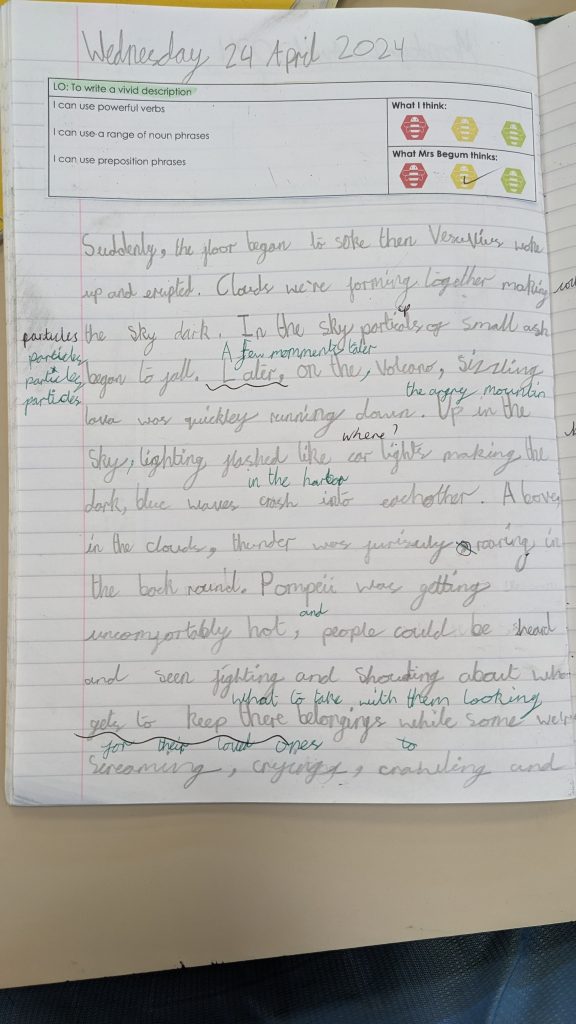 Wednesday 24 April 2024
LO: To write a vivid description
I can use powerful verbs
I can use a range of noun phrases
I can use preposition phrases
What I think:
What Mrs Begum thinks:
Suddenly, the floor began to then Vesuvius woke
up and erupted. Clouds we're forming together making
particles the sky dark. In the sky of small ash
particles
A few momments later
particles began to fall. Later, on the, Volcano, sizzling
particles
the angry mountain
lava was quickley running down. Up in the
where?
Sky, lighting flashed like car lights making the
in the harbor
dark, blue waves crash into eachother. Above,
in the clouds, thunder was roaring in
the back round. Pompeii was getting
and
uncomfortably hot, people could be heard
and seen fighting and shouting about who
what to take with them looking
gets to keep there belongings while some
for their loved ones to
Screaming, crying, crawling and